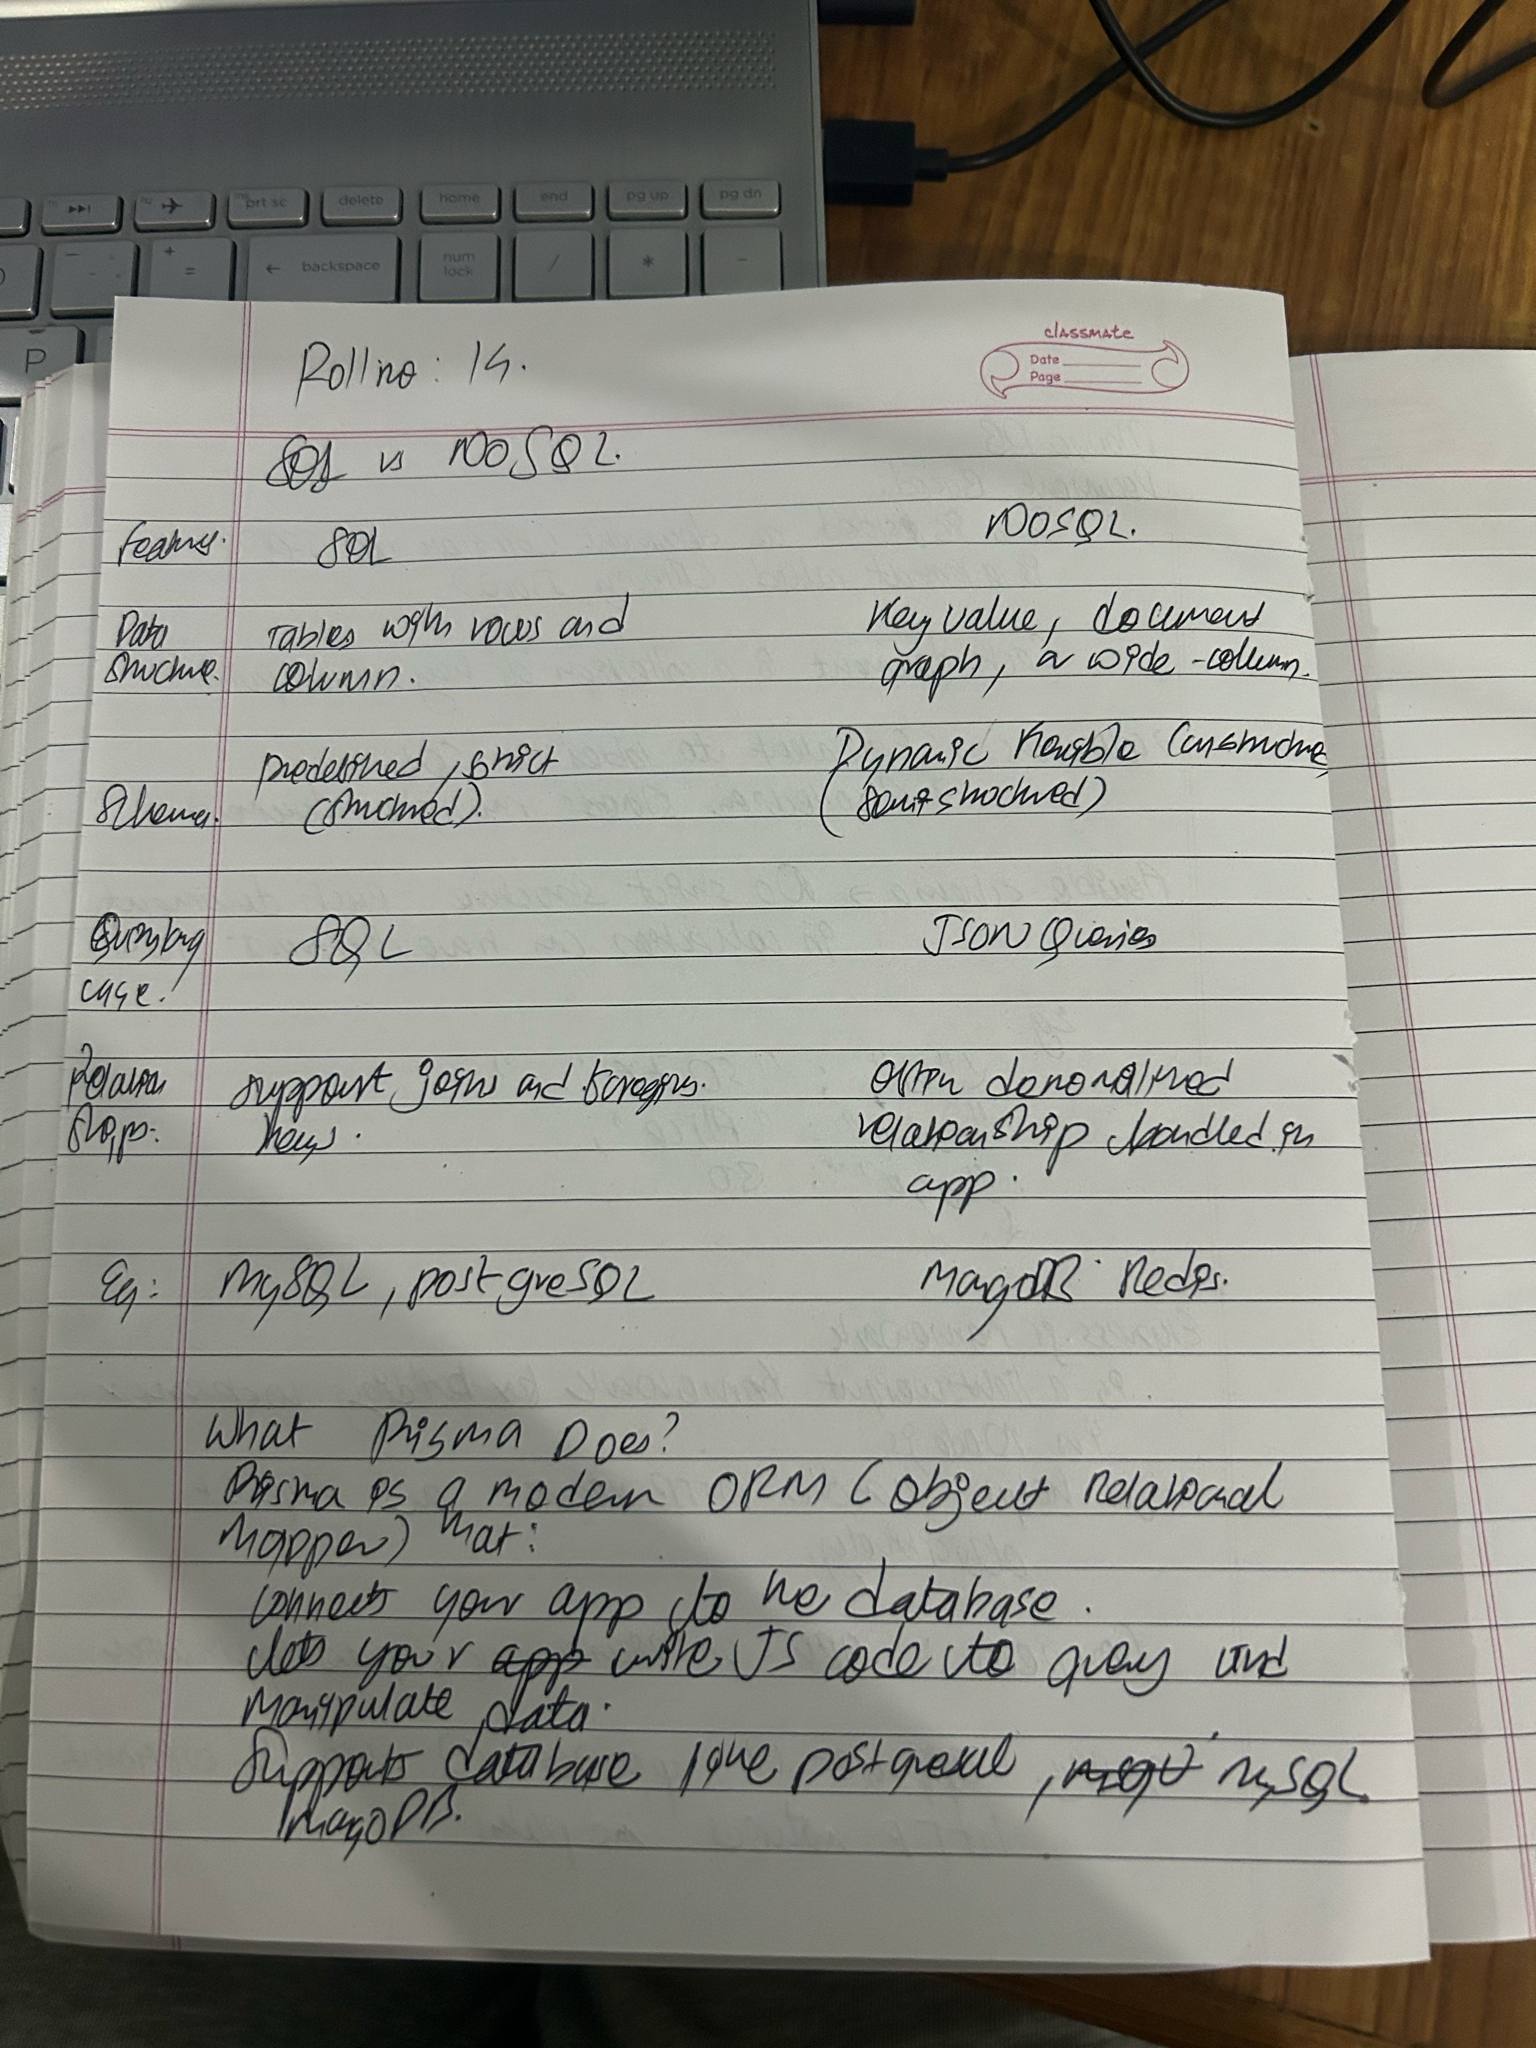 prt sc delete home end pg up pg dn
backspace num lock / * -
P
classmate
Date
Page
Roll no: 14.
SQL vs NOSQL.
Features. SQL NOSQL.
Data Structure. Tables with rows and column. Key value, document graph, a wide-column.
Schema. predefined, strict (structured). Dynamic flexible (unstructure, (semi-structured)
SQL JSON Queries
case.
Relation Ships. support joins and foreigns. keys. often denormalized relationship handled in app.
Eg: MySQL, postgreSQL MongoDB Redis.
What Prisma Does?
Prisma is a modern ORM (object Relational
Mapper) that:
connects your app to the database.
lets your app write JS code to query and
Manipulate data.
Supports database like postgresql, mySQL
MangoDB.